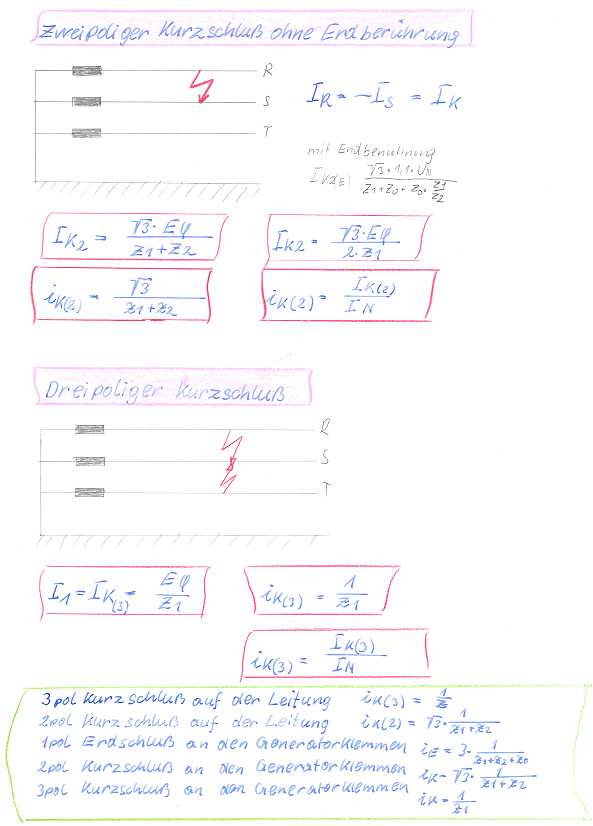 Zweipoliger Kurzschluß ohne Erdberührung
R
S
T
I_R = -I_S = I_K
mit Erdberührung
I_K2E) √3·1,1·U_N / (Z1+Z0+Z0·Z1/Z2)
I_K2 = √3·Eφ / (Z1+Z2)
I_K2 = √3·Eφ / (2·Z1)
i_K(2) = √3 / (z1+z2)
i_K(2) = I_K(2) / I_N
Dreipoliger Kurzschluß
R
S
T
I_1 = I_K(3) = Eφ / Z1
i_K(3) = 1 / z1
i_K(3) = I_K(3) / I_N
3pol Kurzschluß auf der Leitung i_K(3) = 1/z
2pol Kurzschluß auf der Leitung i_K(2) = √3·1/(z1+z2)
1pol Erdschluß an den Generatorklemmen i_E = 3·1/(z1+z2+z0)
2pol Kurzschluß an den Generatorklemmen i_K = √3·1/(z1+z2)
3pol Kurzschluß an den Generatorklemmen i_K = 1/z1